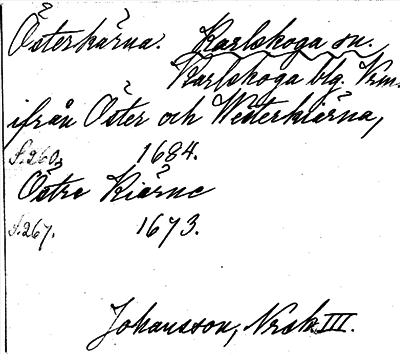 Österkärna. Karlskoga sn.
Karlskoga blg. Vrm.
ifrån Öster och Westerkiärna,
s. 260, 1684.
Östre Kiärne
s. 267. 1673.
Johansson, Nrsk. III.